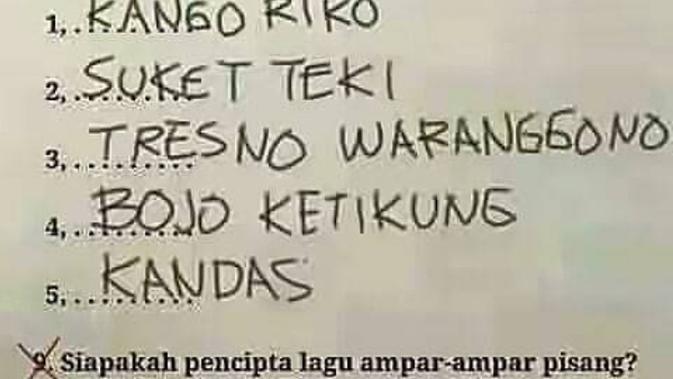 1,. KANGO RIKO
2,. SUKET TEKI
3,. TRESNO WARANGGONO
4,. BOJO KETIKUNG
5,. KANDAS
9. Siapakah pencipta lagu ampar-ampar pisang?